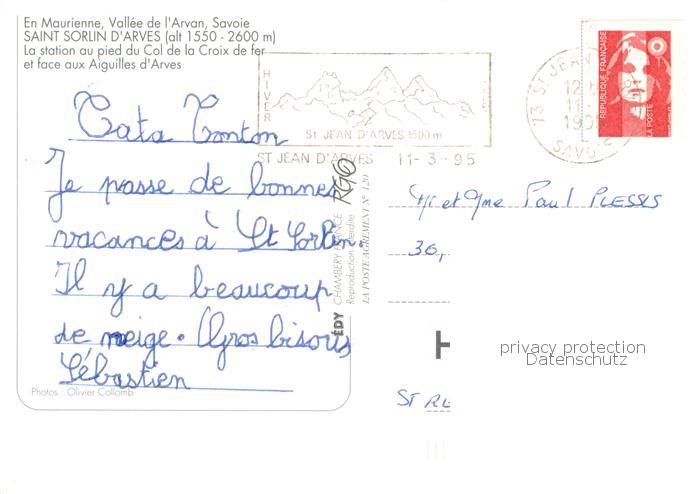 En Maurienne, Vallée de l'Arvan, Savoie
SAINT SORLIN D'ARVES (alt 1550 - 2600 m)
La station au pied du Col de la Croix de fer
et face aux Aiguilles d'Arves
Tata Tonton
Je passe de bonnes
vacances à St Sorlin.
Il y a beaucoup
de neige. Gros bisous
Sébastien
Photos : Olivier Collomb
HIVER
ST JEAN D'ARVES 1500 m
ST JEAN D'ARVES 11-3-95
73 ST JEAN
SAVOIE
REPUBLIQUE FRANÇAISE
LA POSTE
RGO
EDY CHAMBERY FRANCE
Reproduction interdite
LA POSTE AGREMENT N° 120
Mr et Mme Paul PLESSIS
30,
H
privacy protection
Datenschutz
ST